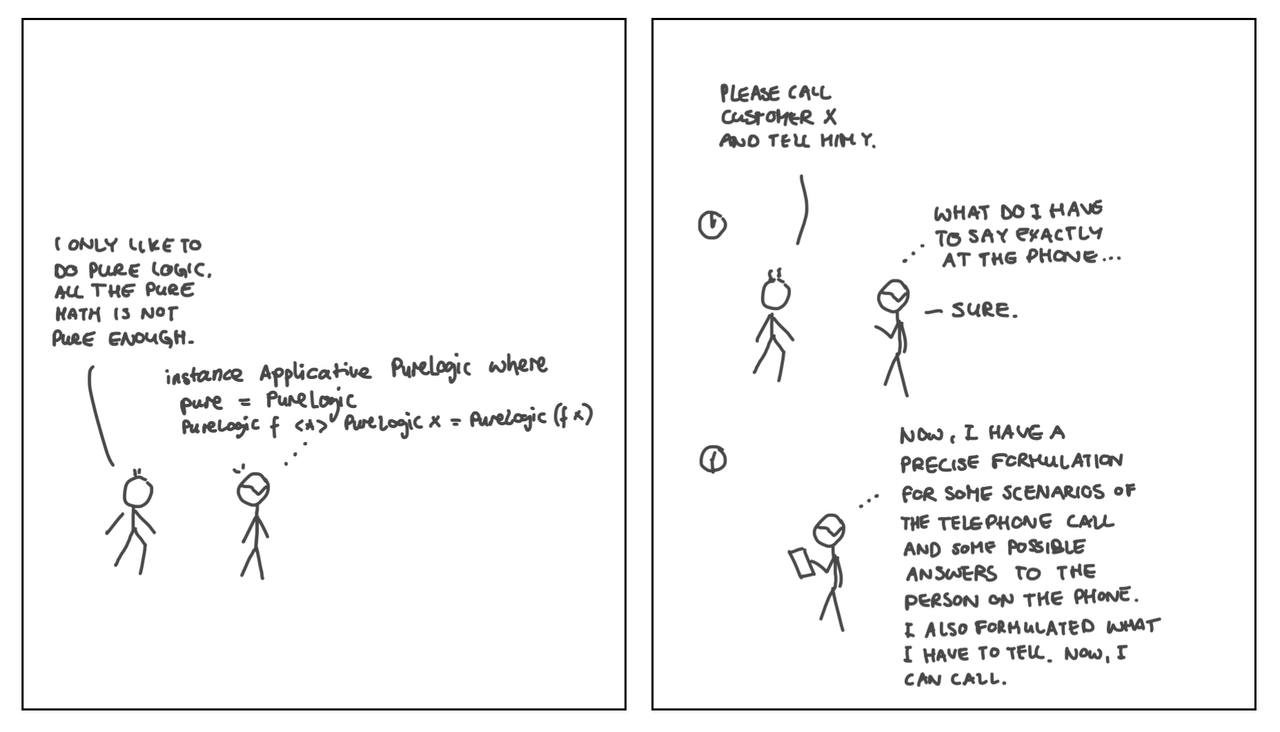 I ONLY LIKE TO
DO PURE LOGIC.
ALL THE PURE
MATH IS NOT
PURE ENOUGH.
instance Applicative PureLogic where
pure = PureLogic
PureLogic f <*> PureLogic x = PureLogic (f x)
PLEASE CALL
CUSTOMER X
AND TELL HIM Y.
WHAT DO I HAVE
TO SAY EXACTLY
AT THE PHONE...
– SURE.
NOW, I HAVE A
PRECISE FORMULATION
FOR SOME SCENARIOS OF
THE TELEPHONE CALL
AND SOME POSSIBLE
ANSWERS TO THE
PERSON ON THE PHONE.
I ALSO FORMULATED WHAT
I HAVE TO TELL. NOW, I
CAN CALL.